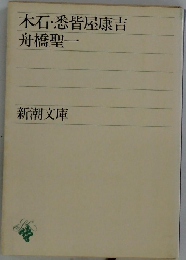 木石・悉皆屋康吉
舟橋聖一
新潮文庫